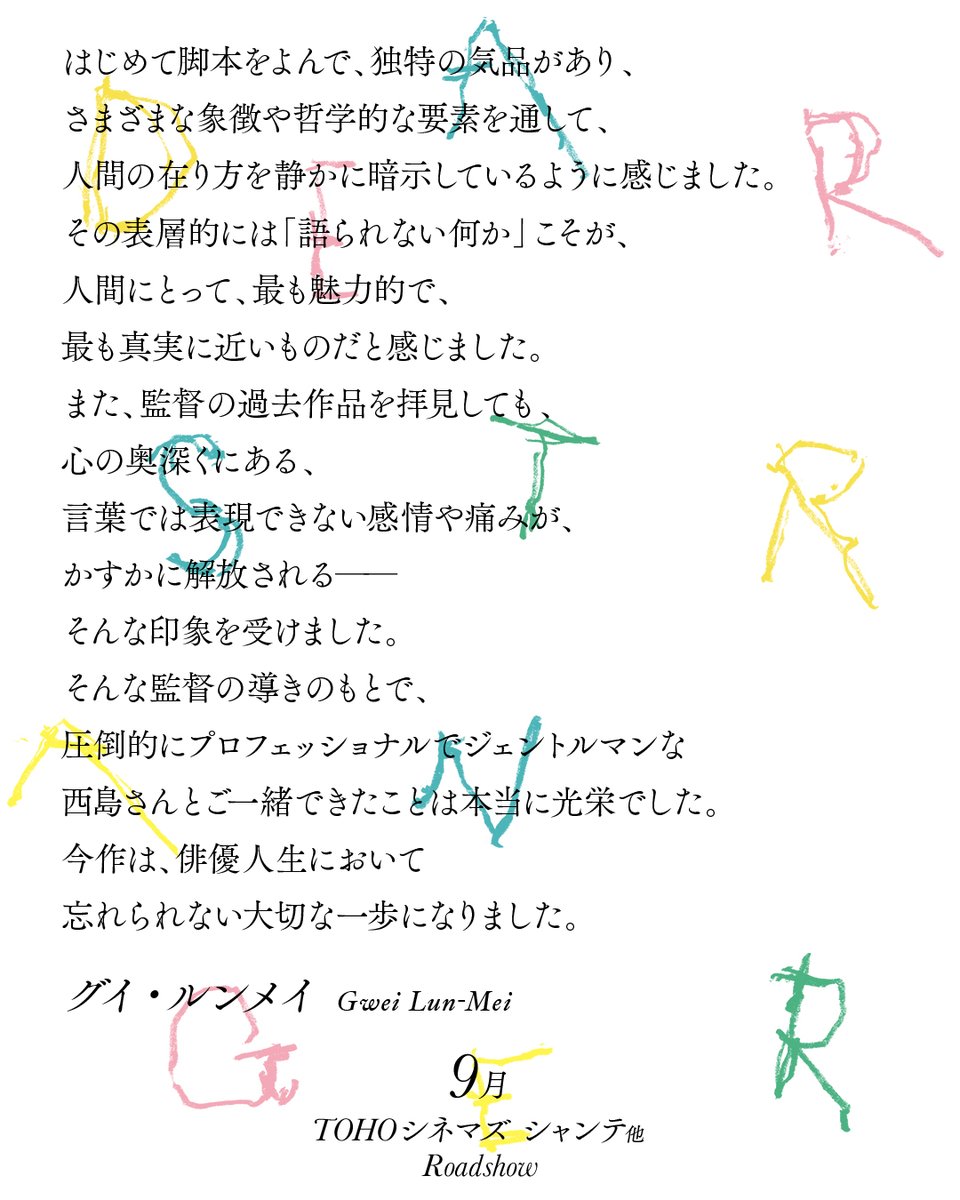 DEAR
はじめて脚本をよんで、独特の気品があり、
さまざまな象徴や哲学的な要素を通して、
人間の在り方を静かに暗示しているように感じました。
その表層的には「語られない何か」こそが、
人間にとって、最も魅力的で、
最も真実に近いものだと感じました。
また、監督の過去作品を拝見しても、
STR
心の奥深くにある、
言葉では表現できない感情や痛みが、
かすかに解放される――
そんな印象を受けました。
そんな監督の導きのもとで、
AN
圧倒的にプロフェッショナルでジェントルマンな
西島さんとご一緒できたことは本当に光栄でした。
今作は、俳優人生において
忘れられない大切な一歩になりました。
GER
グイ・ルンメイ Gwei Lun-Mei
9月
TOHOシネマズ シャンテ他
Roadshow